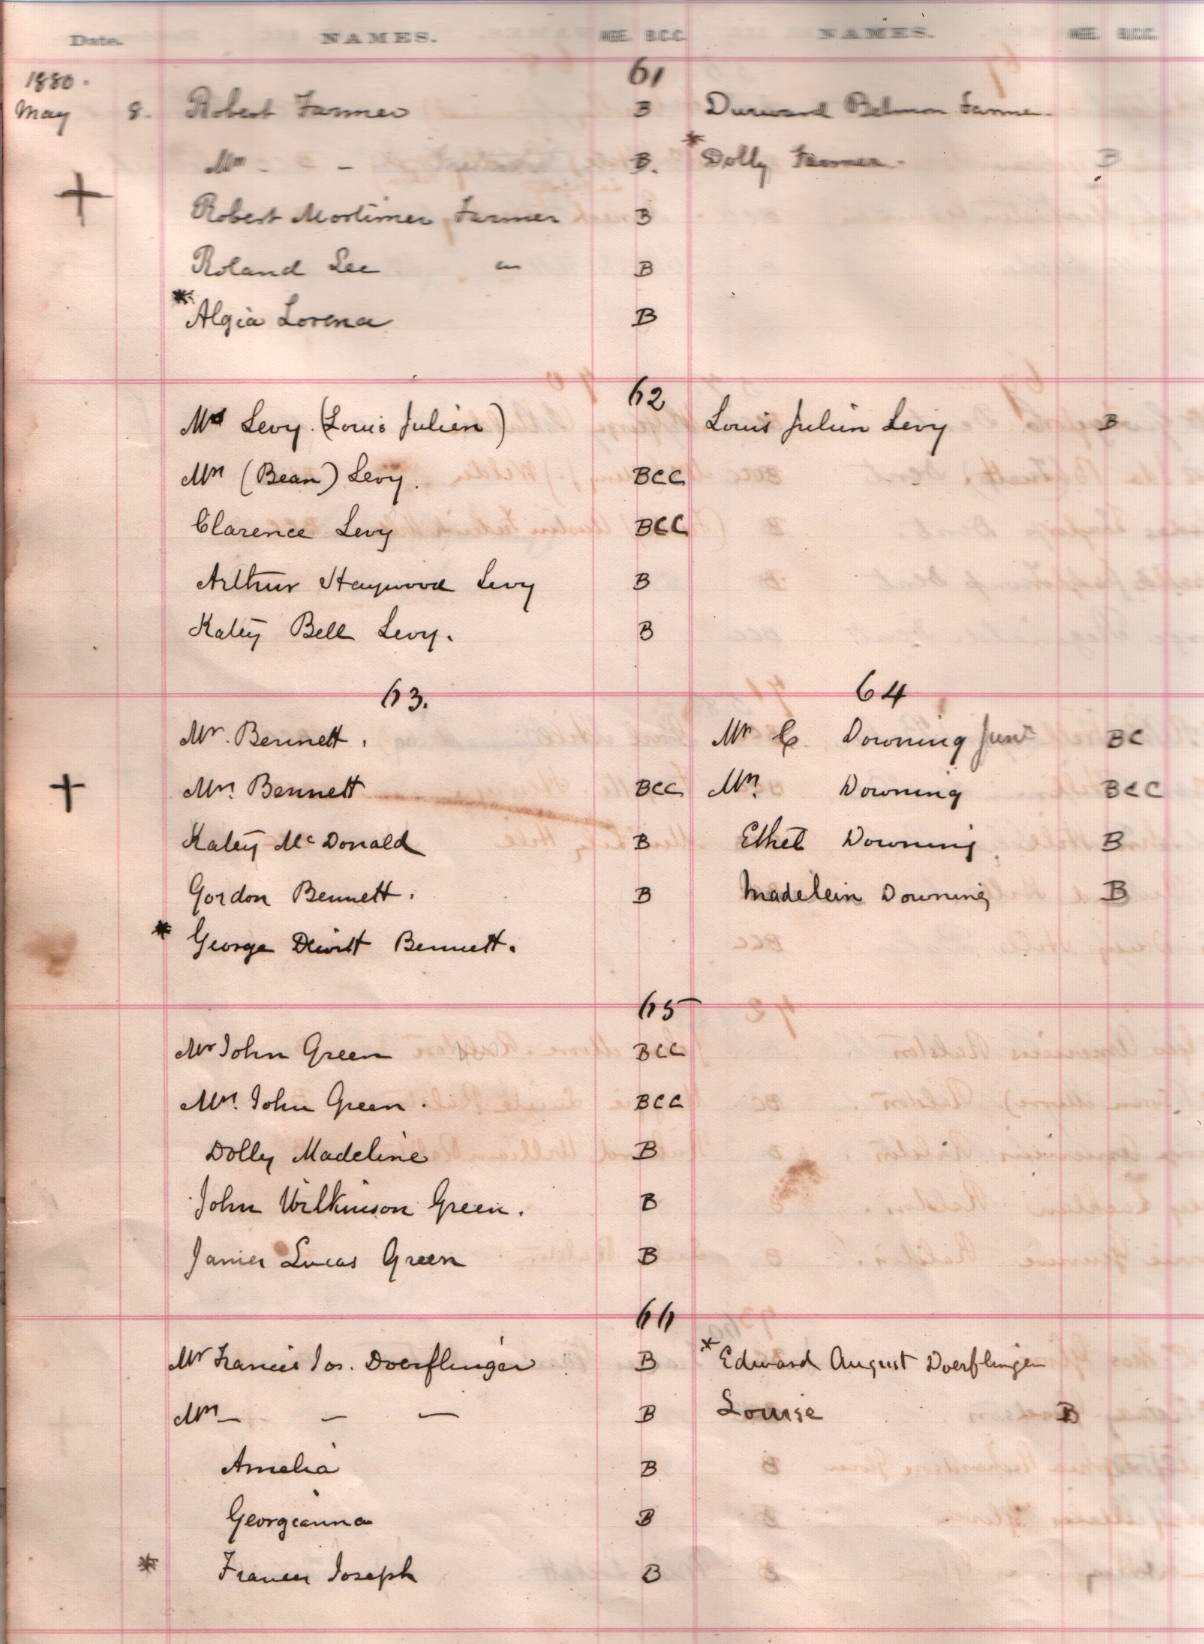 Date. NAMES. AGE. B.C.C. NAMES. AGE. B.C.C.
61
1880.
May 8. Robert Farmer B Durward Belmon Farmer
Mrs - - B. *Dolly Farmer - B
+ Robert Mortimer Farmer B
Roland Lee " B
*Algia Lorena B
62
Mr Levy. (Louis Julien) Louis Julien Levy B
Mrs (Bean) Levy. BCC
Clarence Levy BCC
Arthur Haywood Levy B
Katey Bell Levy. B
63. 64
Mr. Bennett. Mr C. Downing Junr BC
+ Mrs. Bennett BCC Mrs. Downing BCC
Katey McDonald B Ethel Downing. B
Gordon Bennett. B Madelein Downing B
* George Dewitt Bennett.
65
Mr John Green BCC
Mrs. John Green. BCC
Dolly Madeline B
John Wilkinson Green. B
James Lucas Green B
66
Mr Francis Jos. Doerflinger B *Edward August Doerflinger
Mrs - - - B Louise B
Amelia B
Georgianna B
* Francis Joseph B